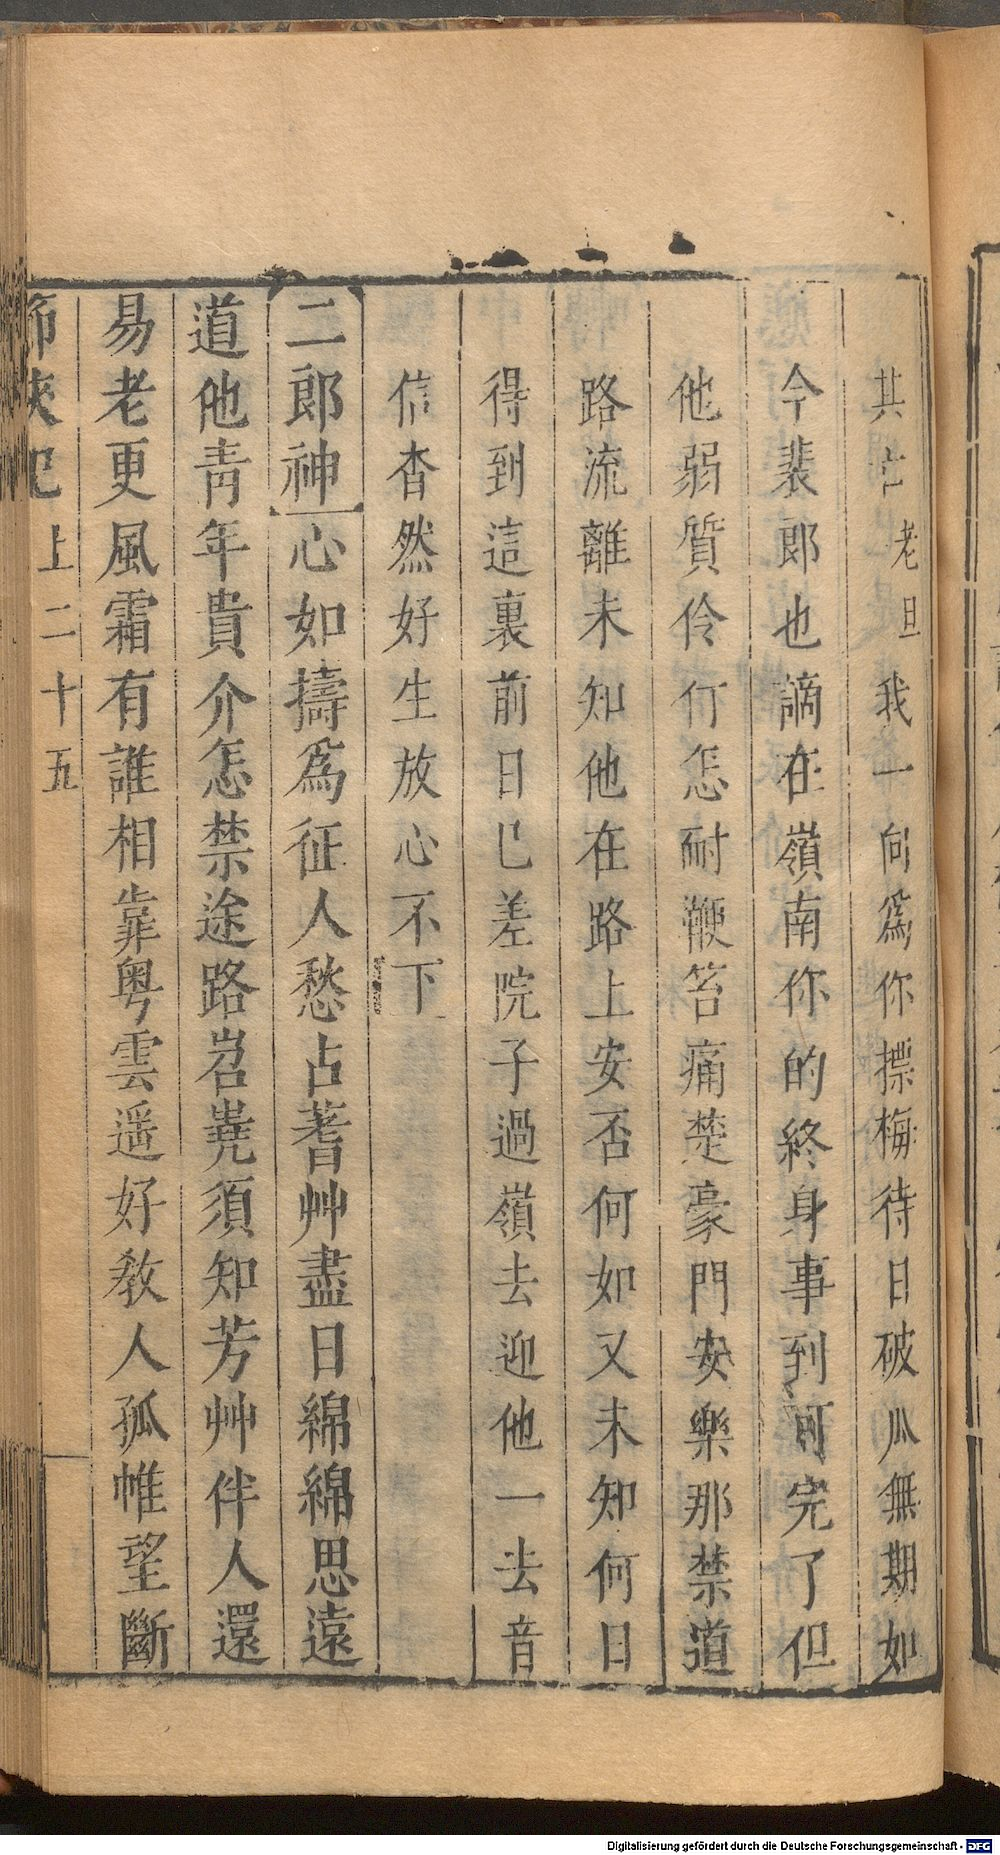 其亡老旦我一向爲你摽梅待日破瓜無期如
今裴郎也謫在嶺南你的終身事到可完了但
他弱質伶仃怎耐鞭笞痛楚豪門安樂那禁道
路流離未知他在路上安否何如又未知何日
得到這裏前日已差院子過嶺去迎他一去音
信杳然好生放心不下
二郎神心如擣爲征人愁占蓍艸盡日綿綿思遠
道他青年貴介怎禁途路岧嶤須知芳艸伴人還
易老更風霜有誰相靠粤雲遥好教人孤帷望斷
節俠記 上 二十五
Digitalisierung gefördert durch die Deutsche Forschungsgemeinschaft - DFG